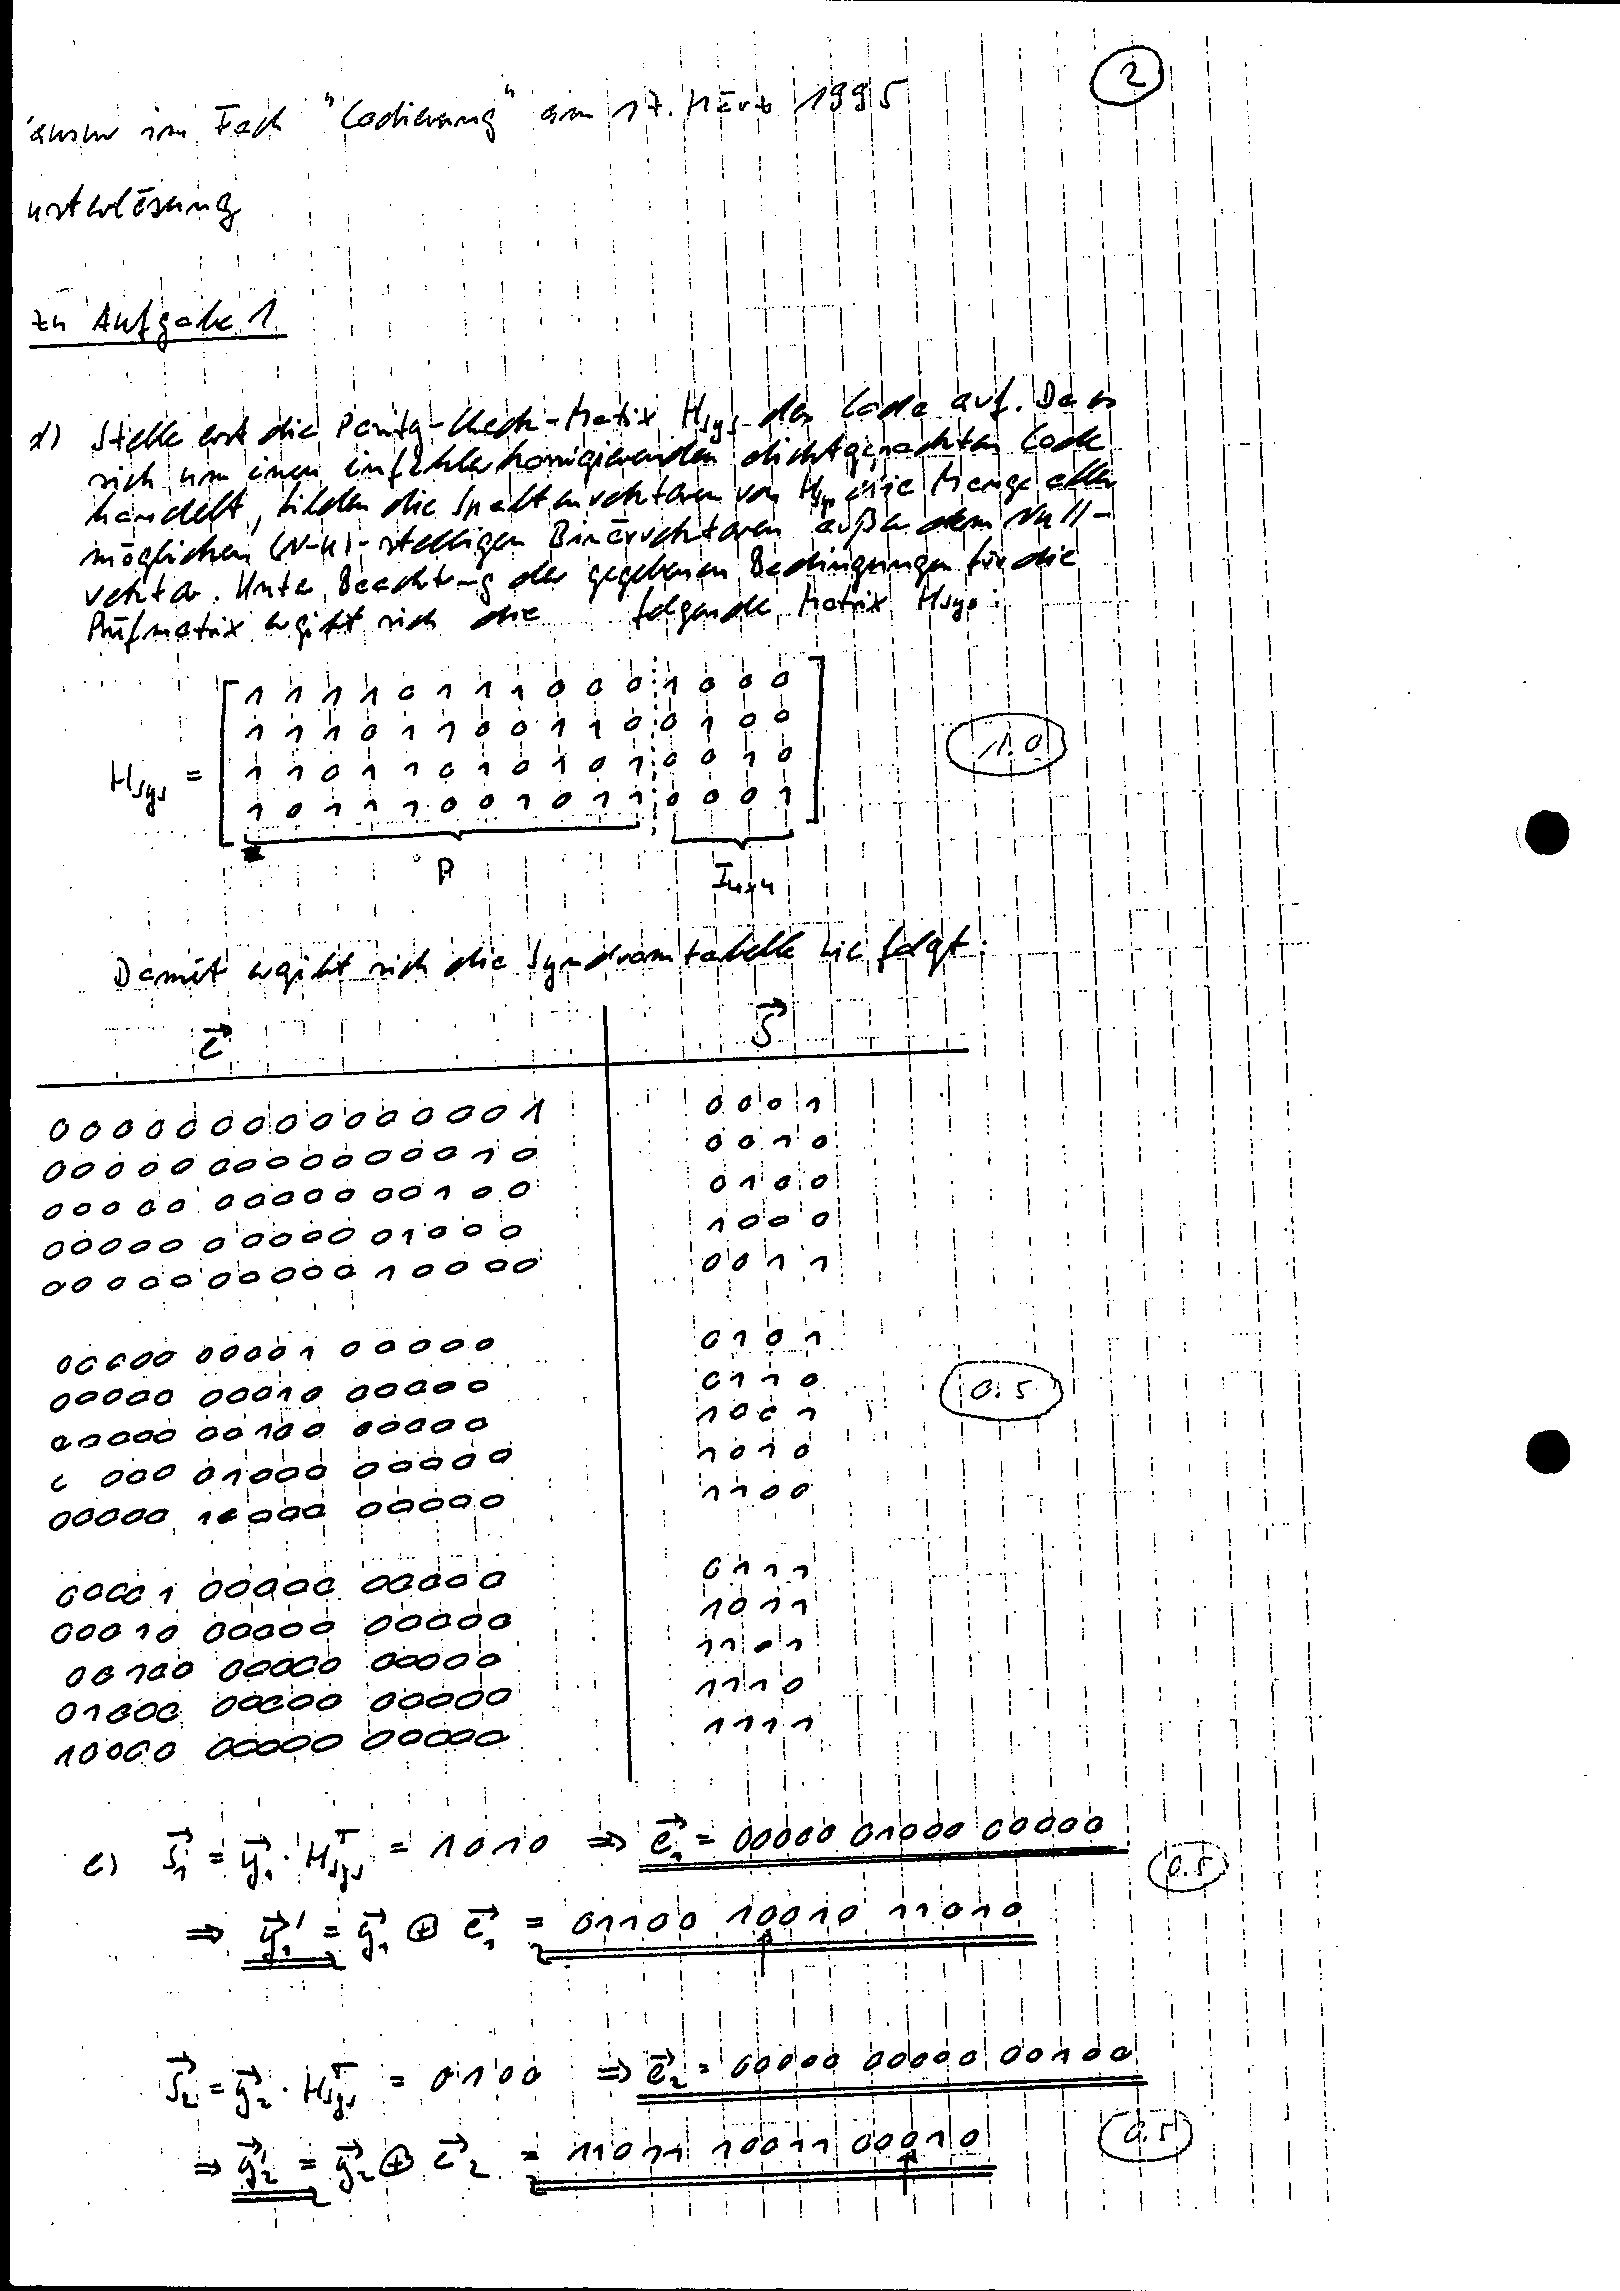 ②
im Fach "Codierung" am 17. März 1995
usterlösung
zu Aufgabe 1
d) Stelle erst die Parity-Check-Matrix Hsys des Code auf. Da es
sich um einen einfehlerkorrigierenden dichtgepackten Code
handelt, bilden die Spaltenvektoren von Hsys die Menge aller
möglichen (N-K)-stelligen Binärvektoren außer dem Null-
vektor. Unter Beachtung der gegebenen Bedingungen für die
Prüfmatrix ergibt sich die folgende Matrix Hsys:
1 1 1 1 0 1 1 1 0 0 0 1 0 0 0
1 1 1 0 1 1 0 0 1 1 0 0 1 0 0
Hsys = 1 1 0 1 1 0 1 0 1 0 1 0 0 1 0
1 0 1 1 1 0 0 1 0 1 1 0 0 0 1
P I4x4
1.0
Damit ergibt sich die Syndromtabelle wie folgt:
e S
0 0 0 0 0 0 0 0 0 0 0 0 0 0 0 1 0 0 0 1
00000 00000000010 0010
00000 0000000100 0100
00000 00000 01000 1000
00000 00000 10000 0011
00000 00001 00000 0101
00000 00010 00000 0110
00000 00100 00000 1001
0 000 01000 00000 1010
00000 10000 00000 1100
0.5
00001 00000 00000 0111
00010 00000 00000 1011
00100 00000 00000 1101
01000 00000 00000 1110
10000 00000 00000 1111
e) S₁ = y₁ · Hsysᵀ = 1010 ⇒ e₁ = 00000 01000 00000
0.5
⇒ y₁' = y₁ ⊕ e₁ = 01100 10010 11010
S₂ = y₂ · Hsysᵀ = 0100 ⇒ e₂ = 00000 00000 00100
⇒ y₂' = y₂ ⊕ e₂ = 11011 10011 00010
0.5